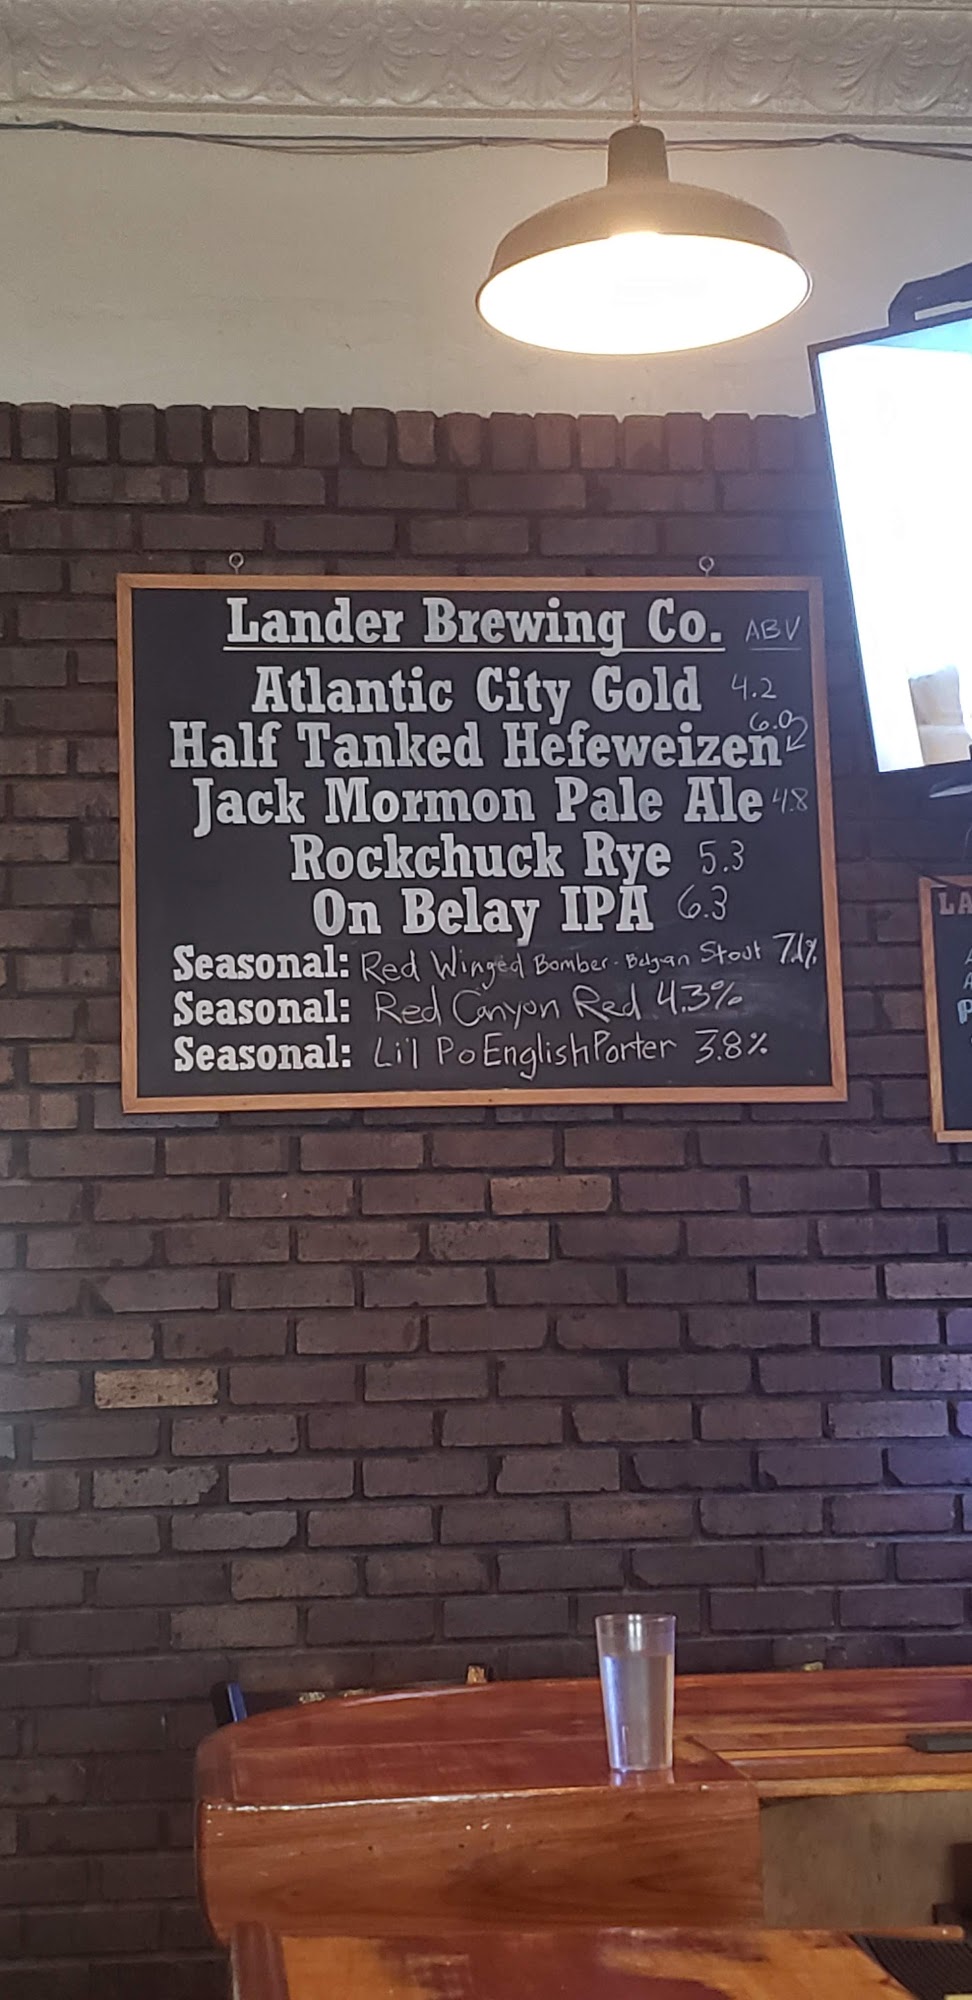 Lander Brewing Co. ABV
Atlantic City Gold 4.2
Half Tanked Hefeweizen 6.0
Jack Mormon Pale Ale 4.8
Rockchuck Rye 5.3
On Belay IPA 6.3
Seasonal: Red Winged Bomber - Belgian Stout 7.1%
Seasonal: Red Canyon Red 4.3%
Seasonal: Li'l Po English Porter 3.8%
LA